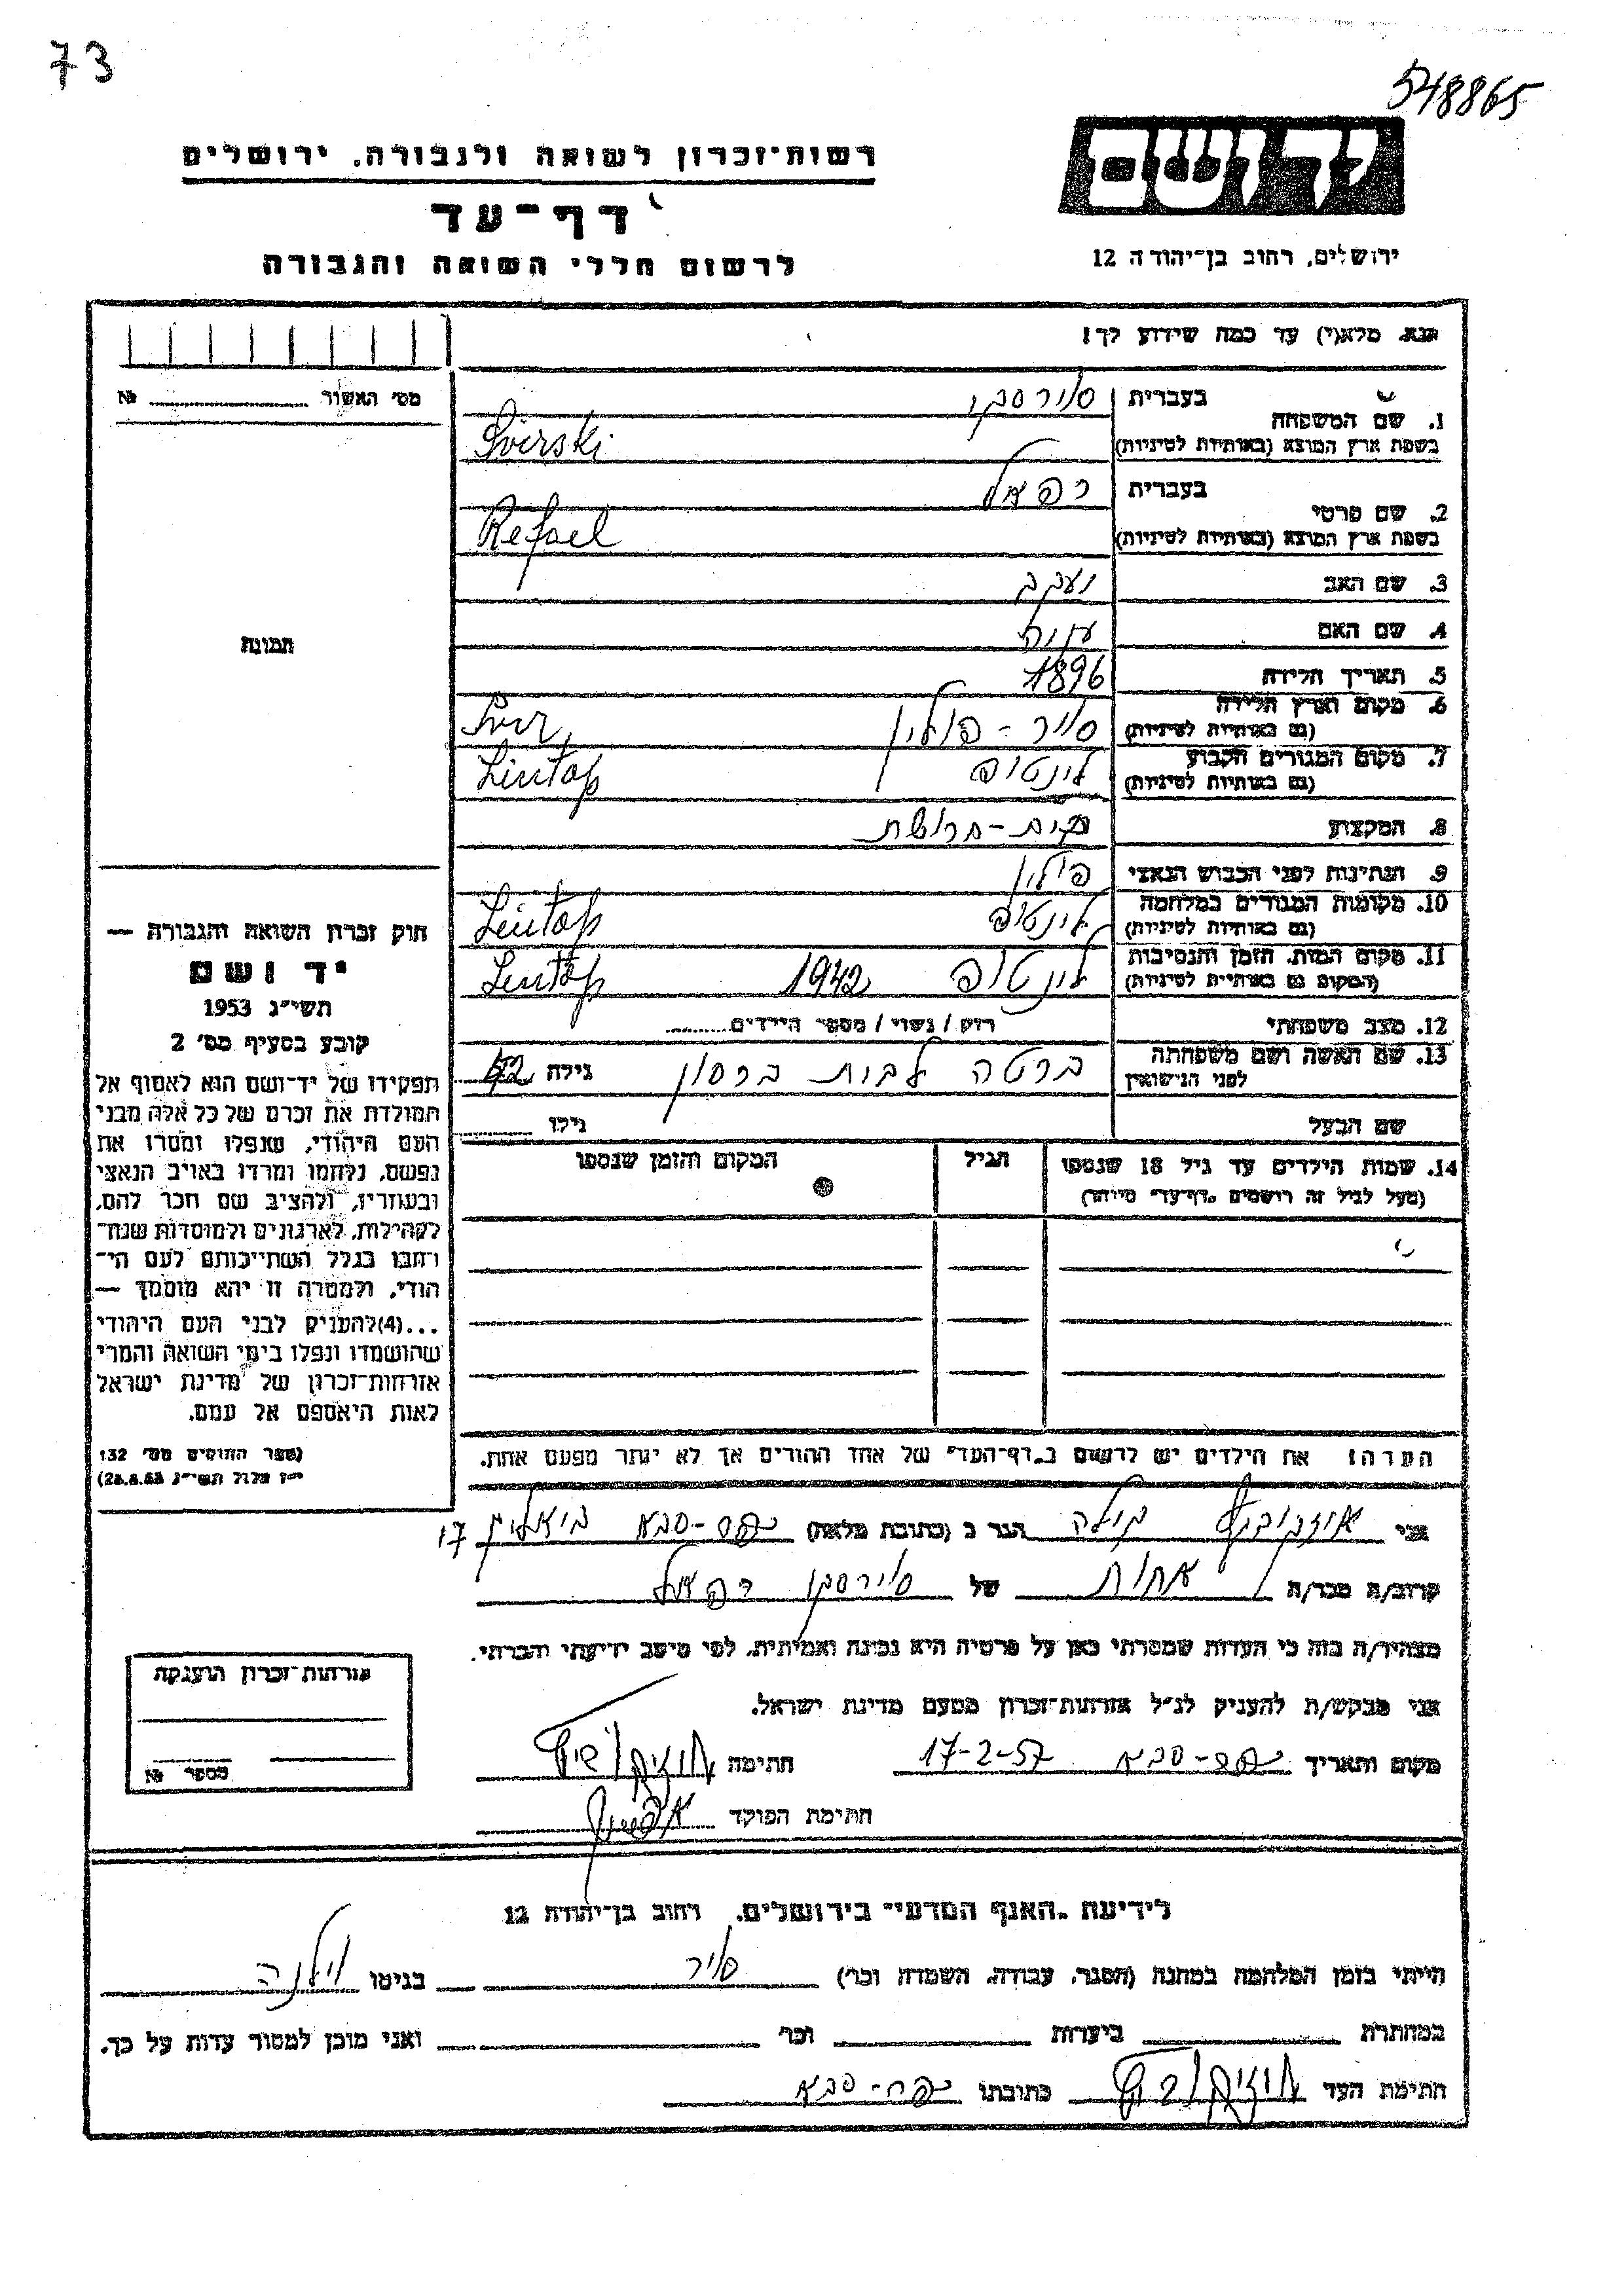 73
548865
יד ושם
רשות־זכרון לשואה ולגבורה, ירושלים
דף־עד
לרשום חללי השואה והגבורה
ירושלים, רחוב בן־יהודה 12
נא מלא(י) עד כמה שידוע לך!
מס׳ האשור № ............
1. שם המשפחה
בעברית סוירסקי
בשפת ארץ המוצא (באותיות לטיניות) Svirski
2. שם פרטי
בעברית רפאל
בשפת ארץ המוצא (באותיות לטיניות) Refael
3. שם האב יעקב
4. שם האם
5. תאריך הלידה 1896
6. מקום וארץ הלידה
(גם באותיות לטיניות) סויר - פולין Svir,
7. מקום המגורים הקבוע
(גם באותיות לטיניות) לינטופ Lintop
8. המקצוע בית-חרושת
9. הנתינות לפני הכבוש הנאצי פולין
10. מקומות המגורים במלחמה
(גם באותיות לטיניות) לינטופ Lintop
11. מקום המות, הזמן והנסיבות
(המקום גם באותיות לטיניות) לינטופ 1942 Lintop
12. מצב משפחתי רווק / נשוי / מספר הילדים............
13. שם האשה ושם משפחתה
לפני הנישואין ברטה לבית ברסון גילה 42
שם הבעל גילו ............
14. שמות הילדים עד גיל 18 שנספו
(מעל לגיל זה רושמים „דף־עד״ מיוחד)
הגיל
המקום והזמן שנספו
הערה: את הילדים יש לרשום ב„דף־העד״ של אחד ההורים אך לא יותר מפעם אחת.
תמונה
חוק זכרון השואה והגבורה —
יד ושם
תשי״ג 1953
קובע בסעיף מס׳ 2
תפקידו של יד־ושם הוא לאסוף אל
המולדת את זכרם של כל אלה מבני
העם היהודי, שנפלו ומסרו את
נפשם, נלחמו ומרדו באויב הנאצי
ובעוזריו, ולהציב שם וזכר להם,
לקהילות, לארגונים ולמוסדות שנח־
רובו בגלל השתייכותם לעם הי־
הודי, ולמטרה זו יהא מוסמך —
...(4)להעניק לבני העם היהודי
שהושמדו ונפלו בימי השואה והמרי
אזרחות־זכרון של מדינת ישראל
לאות היאספם אל עמם.
(ספר החוקים מס׳ 132
י״ז אלול תשי״ג 28.8.53)
אני הגר ב (כתובת מלאה) כפר-סבא ביאליק 17
קרוב/ה מכר/ה אחות של סוירסקי רפאל
מצהיר/ה בזה כי העדות שמסרתי כאן על פרטיה היא נכונה ואמיתית, לפי מיטב ידיעתי והכרתי.
אני מבקש/ת להעניק לנ״ל אזרחות־זכרון מטעם מדינת ישראל.
מקום ותאריך כפר-סבא 17-2-57 חתימה
חתימת הפוקד
אזרחות־זכרון הוענקה
מספר №
לידיעת „האגף המדעי״ בירושלים, רחוב בן־יהודה 12
הייתי בזמן המלחמה במחנה (הסגר, עבודה, השמדה וכו׳) סויר בגיטו וילנה
במחתרת ביערות וכו׳ ואני מוכן למסור עדות על כך.
חתימת העד כתובתו כפר-סבא